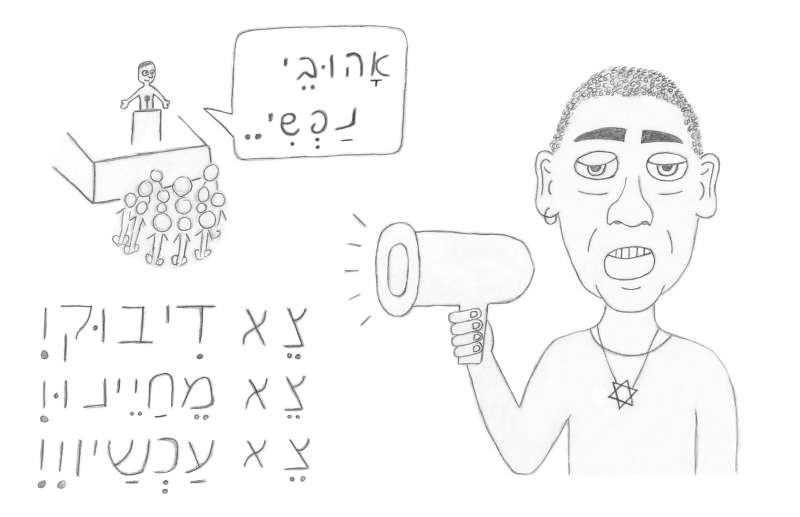 אָהוּבֵי
נַפְשִי..
צֵא דִיבוּק!
צֵא מֵחַיֵינוּ!
צֵא עַכְשַיו!!